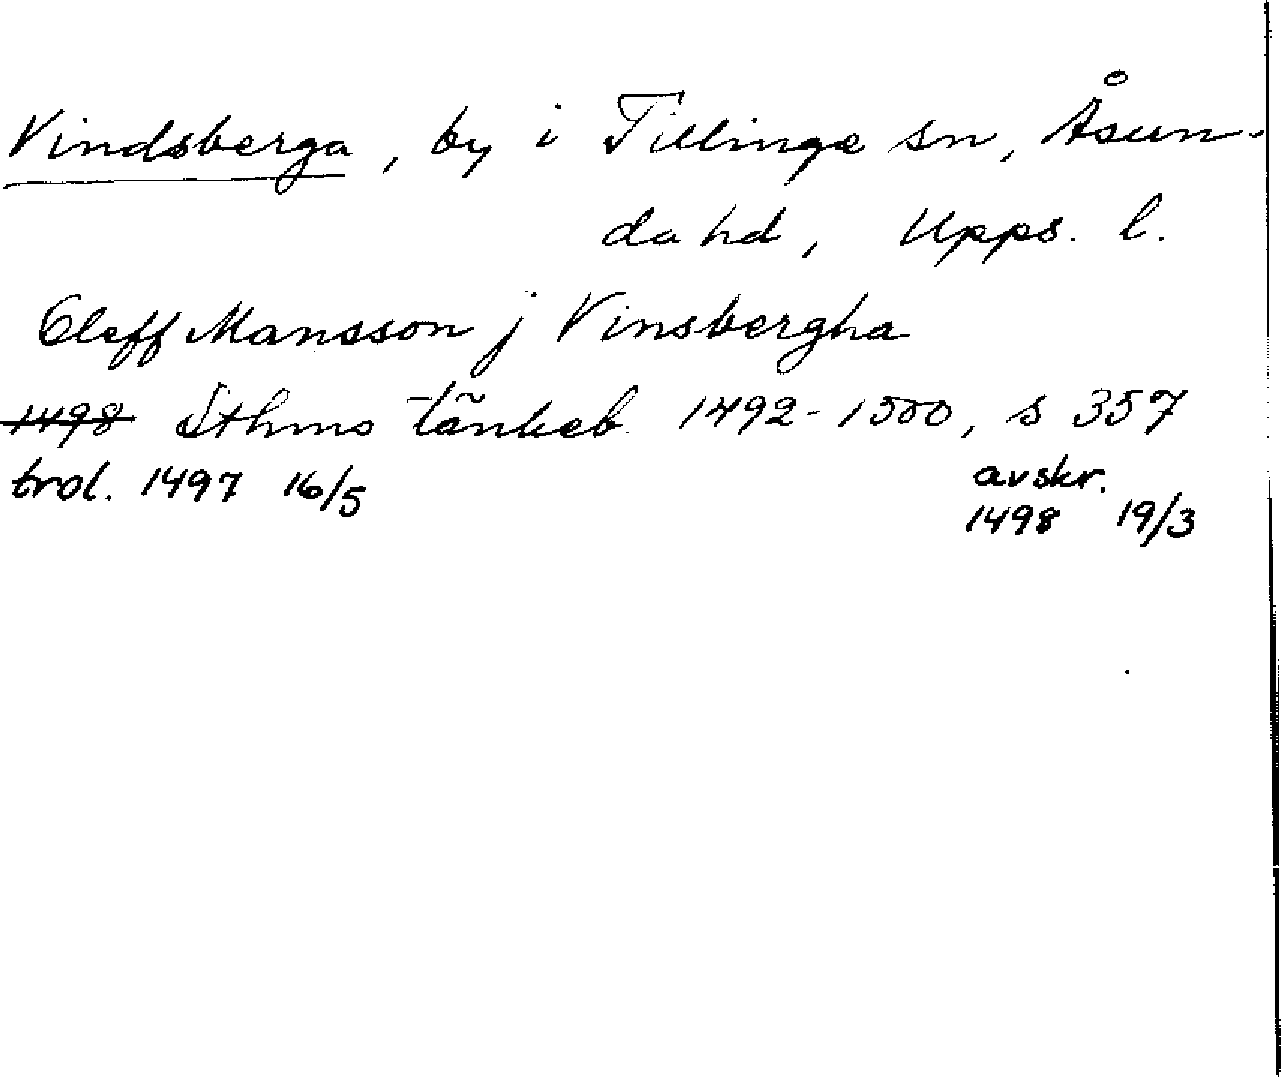 Vindsberga, by i Tillinge sn, Åsun-
da hd, Upps. l.
Oleff Mansson j Vinsbergha
1498 Sthms tänkeb 1492-1500, s 357
trol. 1497 16/5 avskr.
1498 19/3